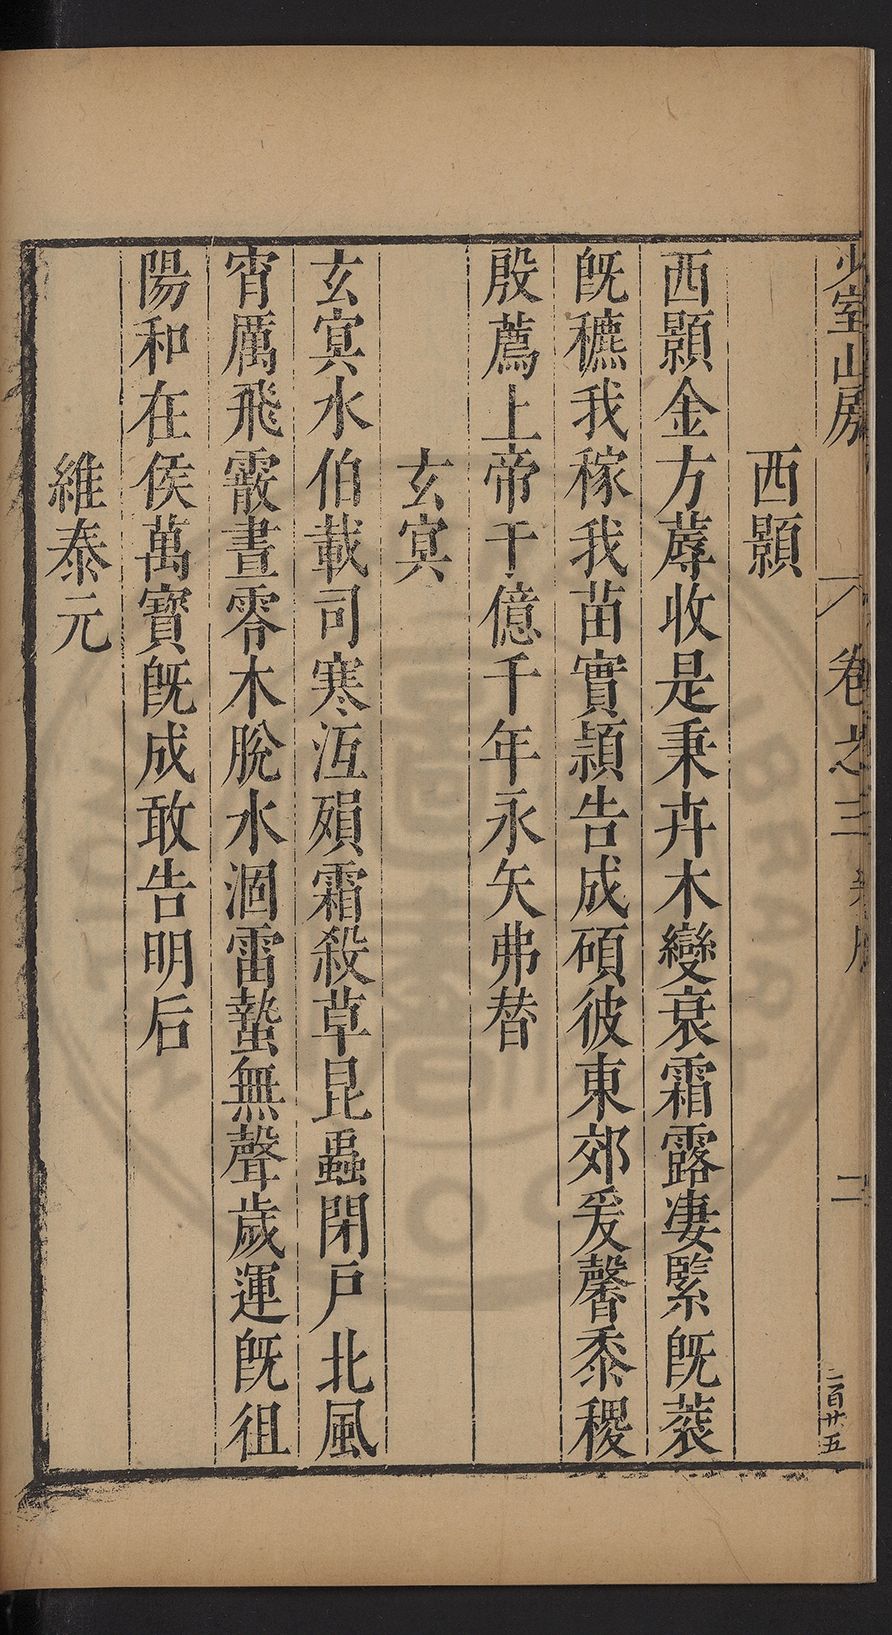 少室山房 卷之三 二 二百廿五
西顥
西顥金方蓐收是秉卉木變衰霜露凄緊既蓘
既穮我稼我苗實穎告成碩彼東郊爰馨黍稷
殷薦上帝于億千年永矢弗替
玄冥
玄冥水伯載司寒沍殞霜殺草昆蟲閉戶北風
宵厲飛霰晝零木脫水涸雷蟄無聲歲運既徂
陽和在侯萬寶既成敢告明后
維泰元